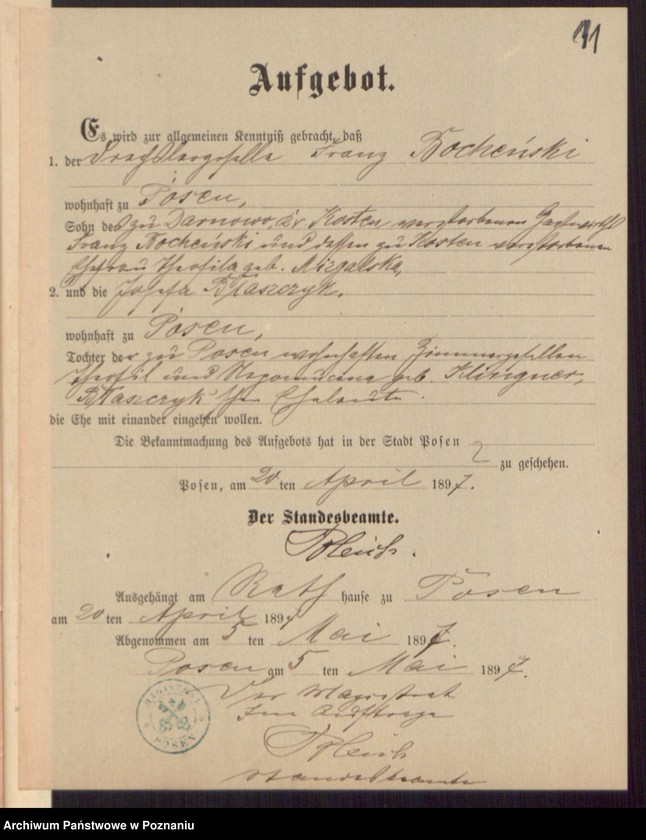 11
Aufgebot.
Es wird zur allgemeinen Kenntniß gebracht, daß
1. der Drechslergeselle Franz Bocheński
wohnhaft zu Posen,
Sohn des zu Darnowo, Kr. Kosten verstorbenen
Franz Bocheński und dessen zu Kosten verstorbenen
Ehefrau Theofila geb. Mizgalska,
2. und die Josefa Błaszczyk,
wohnhaft zu Posen,
Tochter der zu Posen wohnhaften Zimmergesellen
Theofil und Nepomucena geb. Klingner,
Błaszczyk'schen Eheleute.
die Ehe mit einander eingehen wollen.
Die Bekanntmachung des Aufgebots hat in der Stadt Posen
zu geschehen.
Posen, am 20 ten April 1897.
Der Standesbeamte.
Ausgehängt am Rath hause zu Posen
am 20 ten April 1897
Abgenommen am 5 ten Mai 1897.
Posen am 5 ten Mai 1897.
Der Magistrat
Im Auftrage
Standesbeamte
MAGISTRAT
POSEN
Archiwum Państwowe w Poznaniu